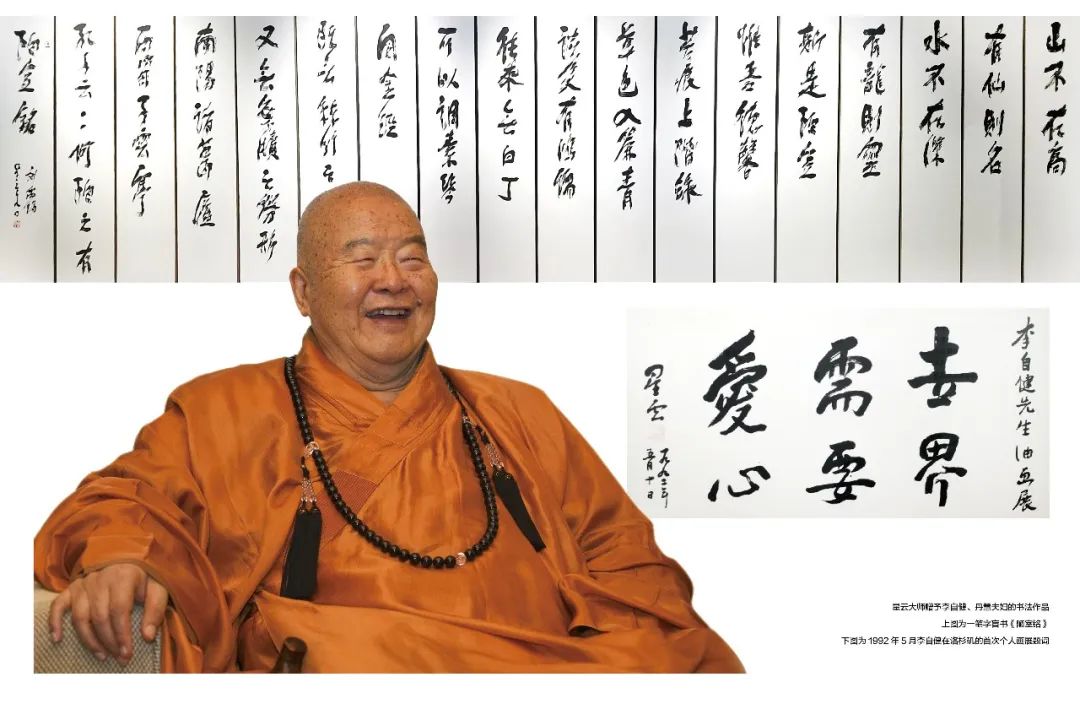 山不在高
有仙則名
水不在深
有龍則靈
斯是陋室
惟吾德馨
苔痕上階綠
草色入簾青
談笑有鴻儒
往來無白丁
可以調素琴
閱金經
絲竹之
又無案牘之勞形
南陽諸葛廬
西蜀子雲亭
孔子云：何陋之有
陋室銘
李自健先生油画展
世界
需要
愛心
星云
一九九二年
五月十日
星云大师赠予李自健、丹慧夫妇的书法作品
上图为一笔字盲书《陋室铭》
下图为 1992 年 5 月李自健在洛杉矶的首次个人画展题词